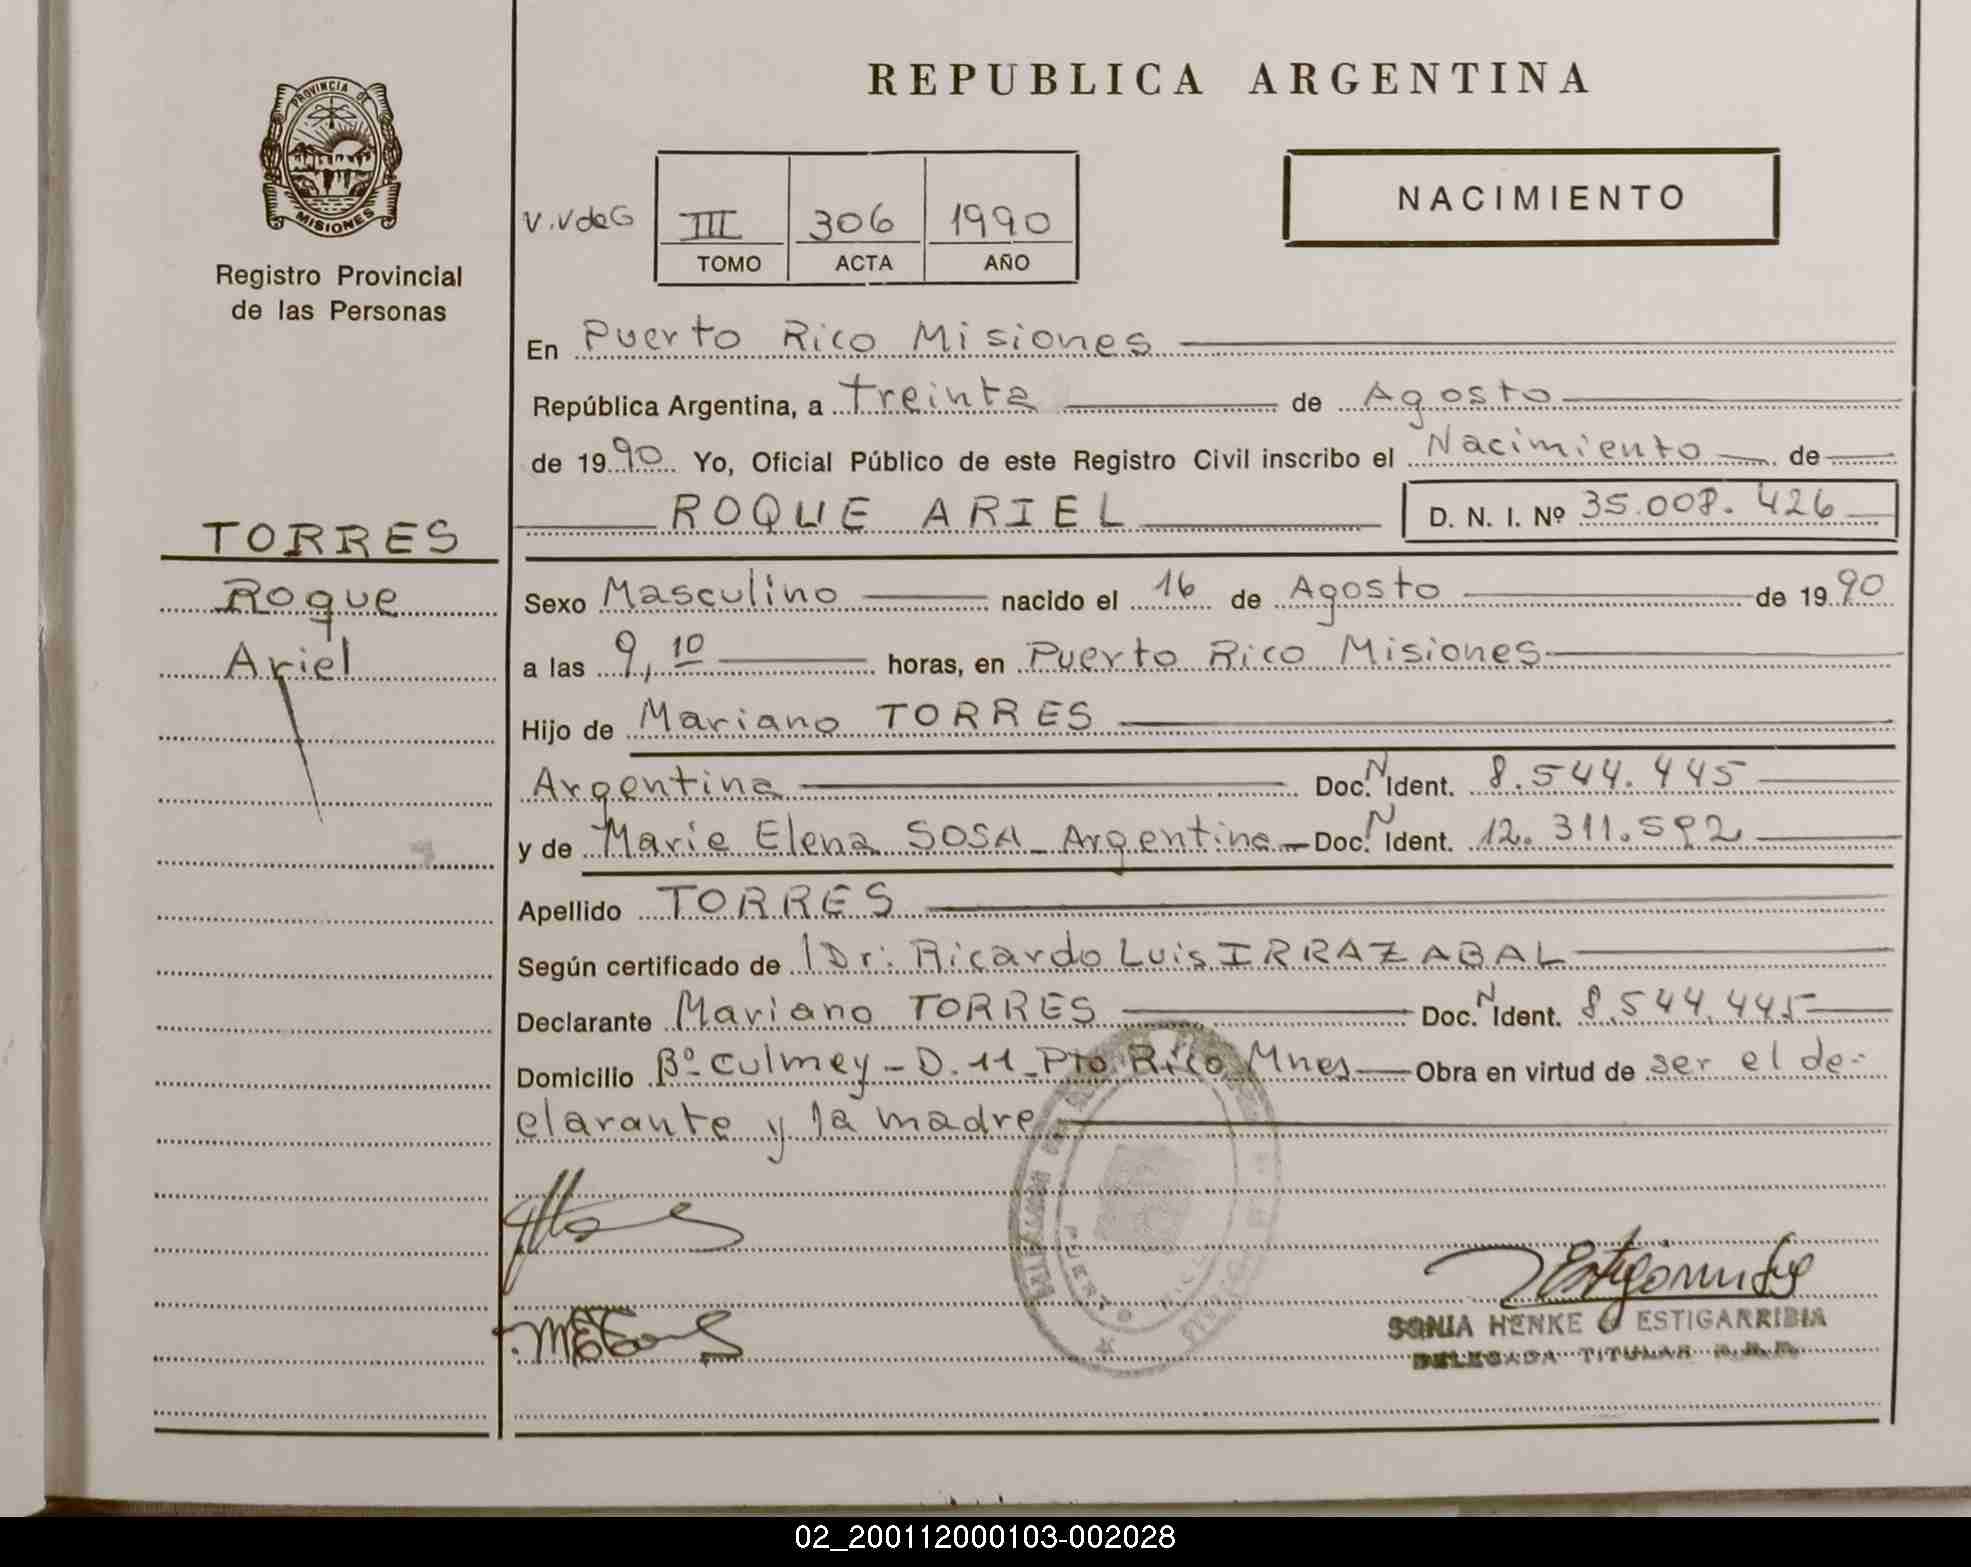 REPUBLICA ARGENTINA
PROVINCIA DE
MISIONES
Registro Provincial
de las Personas
V.VdeG III 306 1990
TOMO ACTA AÑO
NACIMIENTO
En Puerto Rico Misiones
República Argentina, a treinta de Agosto
de 1990 Yo, Oficial Público de este Registro Civil inscribo el Nacimiento de
ROQUE ARIEL D. N. I. Nº 35.008.426
TORRES
Roque
Ariel
Sexo Masculino nacido el 16 de Agosto de 1990
a las 9,10 horas, en Puerto Rico Misiones
Hijo de Mariano TORRES
Argentina Doc. N Ident. 8.544.445
y de Maria Elena SOSA - Argentina - Doc. N Ident. 12.311.592
Apellido TORRES
Según certificado de Dr: Ricardo Luis IRRAZABAL
Declarante Mariano TORRES Doc. N Ident. 8.544.445
Domicilio Bº Culmey - D.11 - Pto Rico Mnes - Obra en virtud de ser el de-
clarante y la madre
SONIA HENKE de ESTIGARRIBIA
DELEGADA TITULAR
02_200112000103-002028